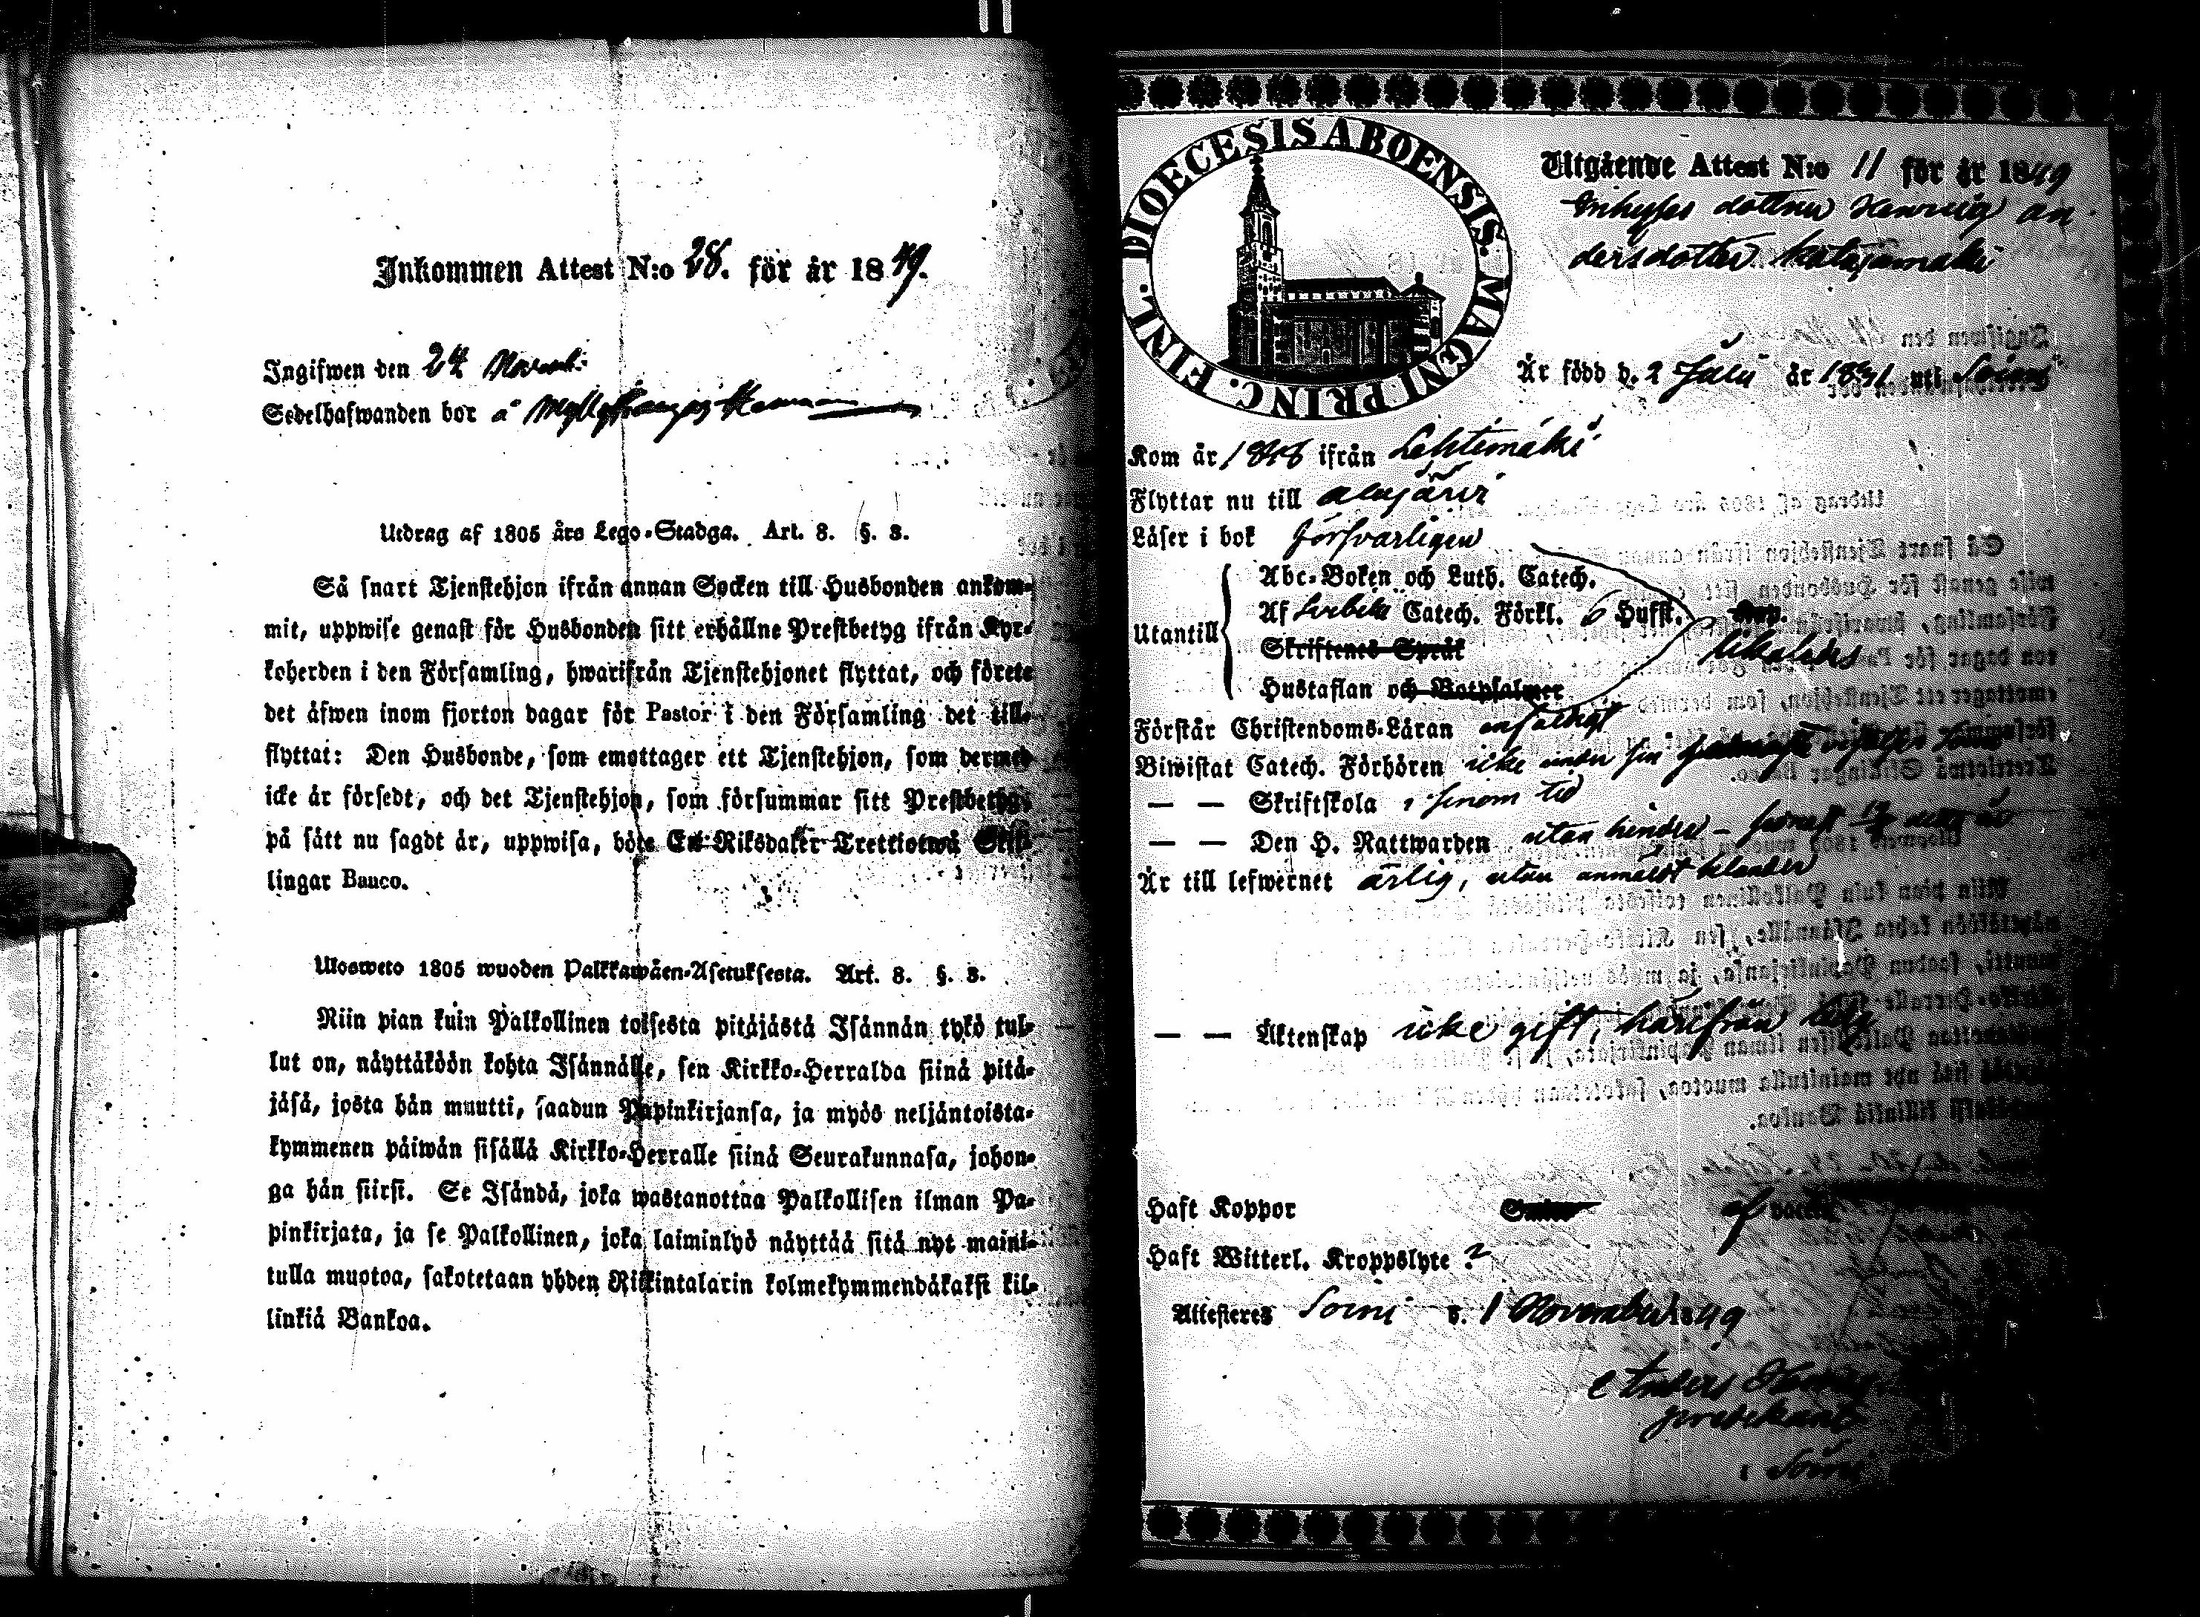 Inkommen Attest N:o 28. för år 1849.
Ingifwen den 24 Novemb:
Sedelhafwanden bor å
Utdrag af 1805 års Lego-Stadga. Art. 8. §. 3.
Så snart Tjenstehjon ifrån annan Socken till Husbonden ankom-
mit, uppwise genast för Husbonden sitt erhållne Prestbetyg ifrån Kyr-
koherden i den Församling, hwarifrån Tjenstehjonet flyttat, och förete
det äfwen inom fjorton dagar för Pastor i den Församling det till-
flyttat: Den Husbonde, som emottager ett Tjenstehjon, som dermed
icke är försedt, och det Tjenstehjon, som försummar sitt Prestbetyg,
på sätt nu sagdt är, uppwisa, böte En Riksdaler Trettiotwå Skil-
lingar Banco.
Ulosweto 1805 wuoden Palkkawäen-Asetuksesta. Art. 8. §. 3.
Niin pian kuin Palkollinen toisesta pitäjästä Isännän tykö tul-
lut on, näyttäköön kohta Isännälle, sen Kirkko-Herralda siinä pitä-
jäsä, josta hän muutti, saadun Papinkirjansa, ja myös neljäntoista-
kymmenen päiwän sisällä Kirkko-Herralle siinä Seurakunnasa, johon-
ga hän siirsi. Se Isändä, joka wastanottaa Palkollisen ilman Pa-
pinkirjata, ja se Palkollinen, joka laiminlyö näyttää sitä nyt maini-
tulla muotoa, sakotetaan yhden Riikintalarin kolmekymmendäkaksi kil-
linkiä Bankoa.
DIOECESIS ABOENSIS. MAGNI PRINC. FINL.
Utgående Attest N:o 11 för år 1849
Inhyses dottren Henrica An-
dersdotter Katajamäki
Är född d. 2 Julii år 1831 uti Soini
Kom år 1848 ifrån Lehtimäki
Flyttar nu till Alajärvi
Läser i bok försvarligen
Utantill
Abc-Boken och Luth. Catech.
Af Svebilii Catech. Förkl. 6 Hufst. Kap.
Skriftenes Språk
likaledes
Hustaflan och Botpsalmer
Förstår Christendoms-Läran enfaldigt
Biwistat Catech. Förhören icke under sin
— — Skriftskola i sinom tid
— — Den H. Nattwarden utan hinder –
Är till lefwernet ärlig, utan anmäldt klander
— — Äktenskap icke gift, härifrån ledig
Haft Koppor
Haft Witterl. Kroppslyte ?
Attesteres Soini d. 1 November 1849
Anders
predikant
i Soini